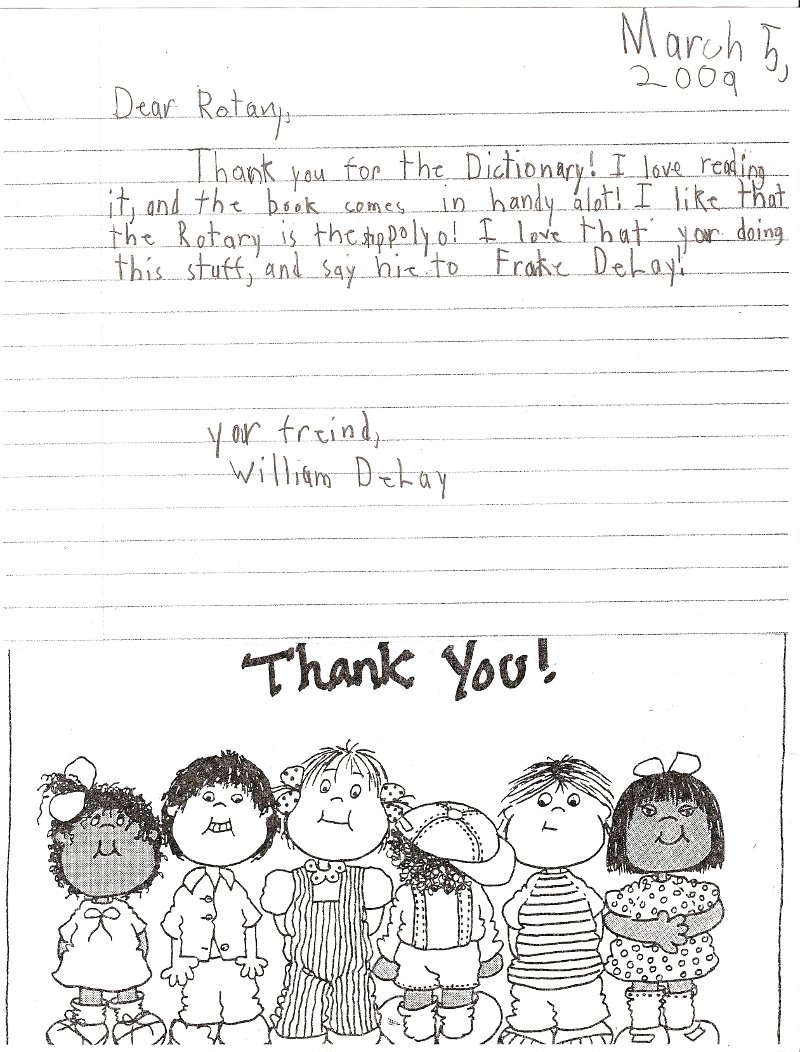 March 5,
2009
Dear Rotary,
Thank you for the Dictionary! I love reading
it, and the book comes in handy alot! I like that
the Rotary is the! I love that yor doing
this stuff, and say hie to Frake DeLay!
yor freind,
William DeLay
Thank You!